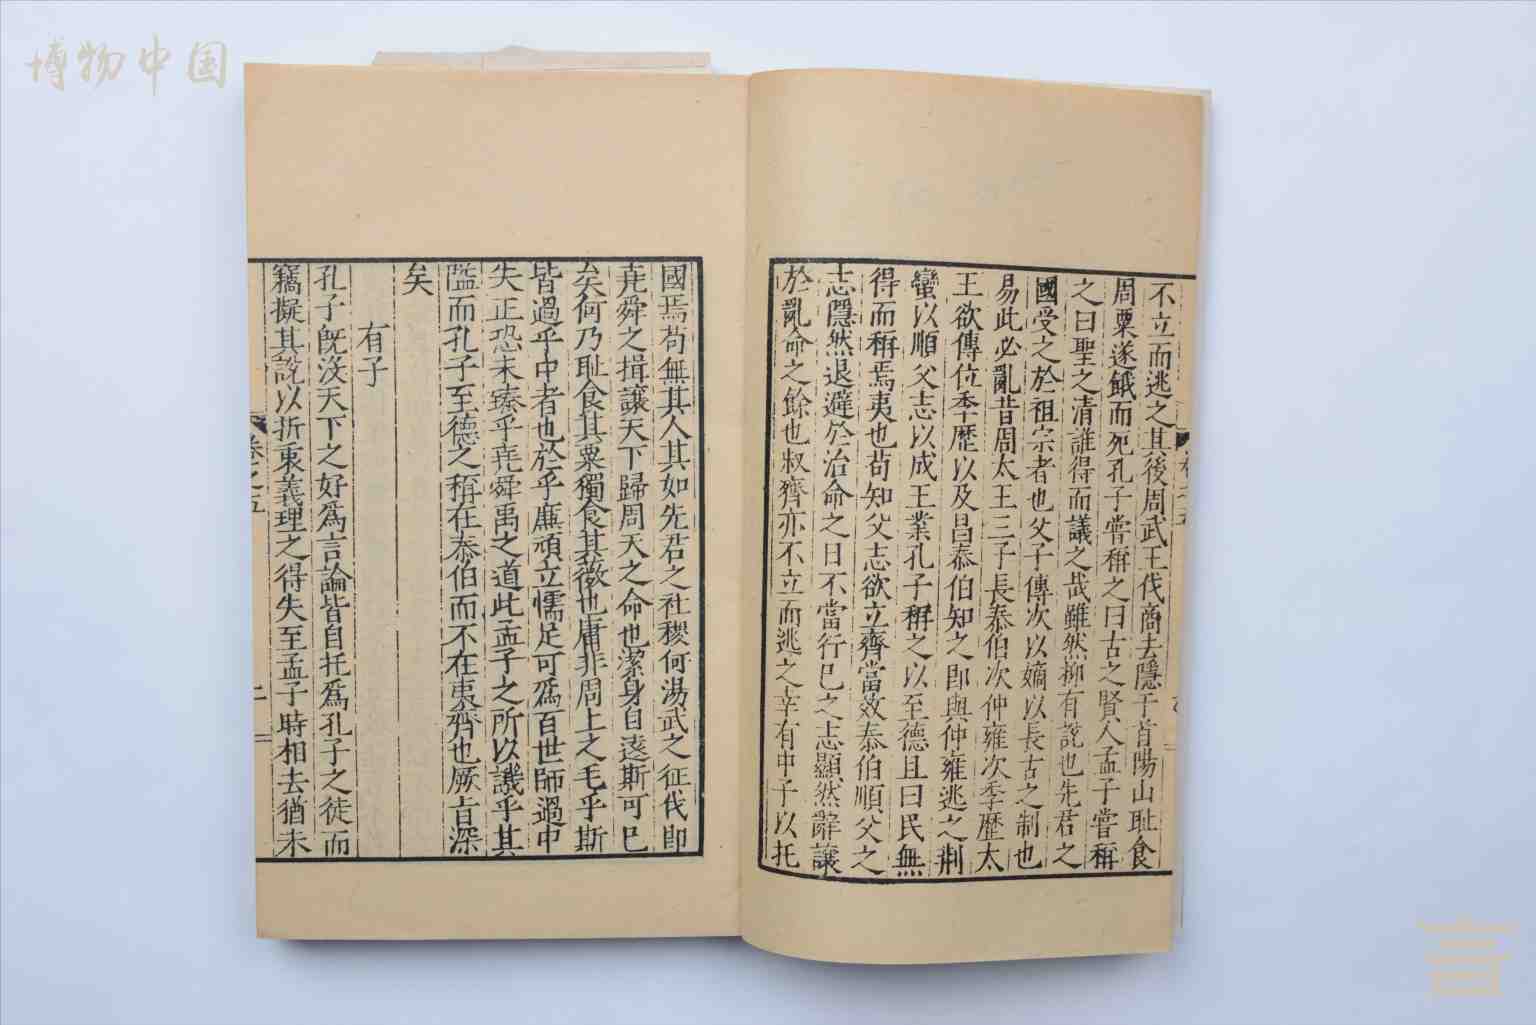 博物中国
不立而逃之其後周武王伐商去隱于首陽山耻食
周粟遂餓而死孔子嘗稱之曰古之賢人孟子嘗稱
之曰聖之清誰得而議之哉雖然抑有說也先君之
國受之於祖宗者也父子傳次以嫡以長古之制也
易此必亂昔周太王三子長泰伯次仲雍次季歷太
王欲傳位季歷以及昌泰伯知之即與仲雍逃之荆
蠻以順父志以成王業孔子稱之以至德且曰民無
得而稱焉夷也苟知父志欲立齊當效泰伯順父之
志隱然退避於治命之日不當行已之志顯然辭讓
於亂命之餘也叔齊亦不立而逃之幸有中子以托
國焉苟無其人其如先君之社稷何湯武之征伐即
堯舜之揖讓天下歸周天之命也潔身自遠斯可已
矣何乃耻食其粟獨食其薇也庸非周土之毛乎斯
皆過乎中者也於乎廉頑立懦足可爲百世師過中
失正恐未臻乎堯舜禹之道此孟子之所以譏乎其
隘而孔子至德之稱在泰伯而不在夷齊也厥旨深
矣
有子
孔子旣没天下之好爲言論皆自托爲孔子之徒而
竊擬其說以折衷義理之得失至孟子時相去猶未
卷之五
二
言